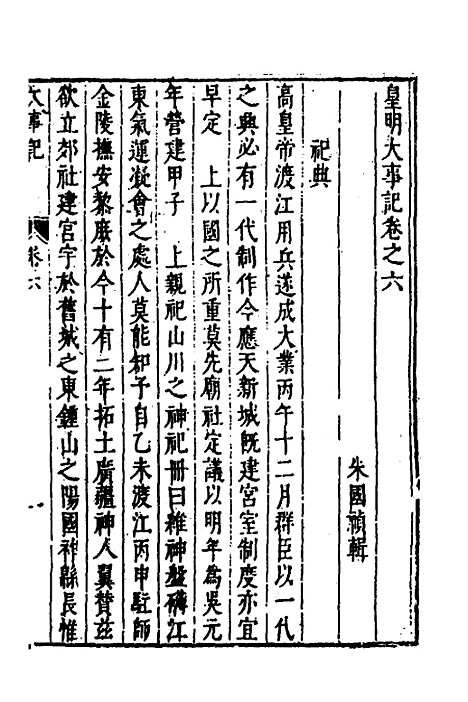 皇明大事記卷之六
朱國禎輯
祀典
高皇帝渡江用兵遂成大業丙午十二月群臣以一代
之興必有一代制作今應天新城旣建宮室制度亦宜
早定　上以國之所重莫先廟社定議以明年為吳元
年營建甲子　上親祀山川之神祀冊曰維神盤礴江
東氣運凝會之處人莫能知予自乙未渡江丙申駐師
金陵撫安黎庶於今十有二年拓土廣疆神人翼贊茲
欲立郊社建宮宇於舊城之東鍾山之陽國神縣長惟
大事記　卷六